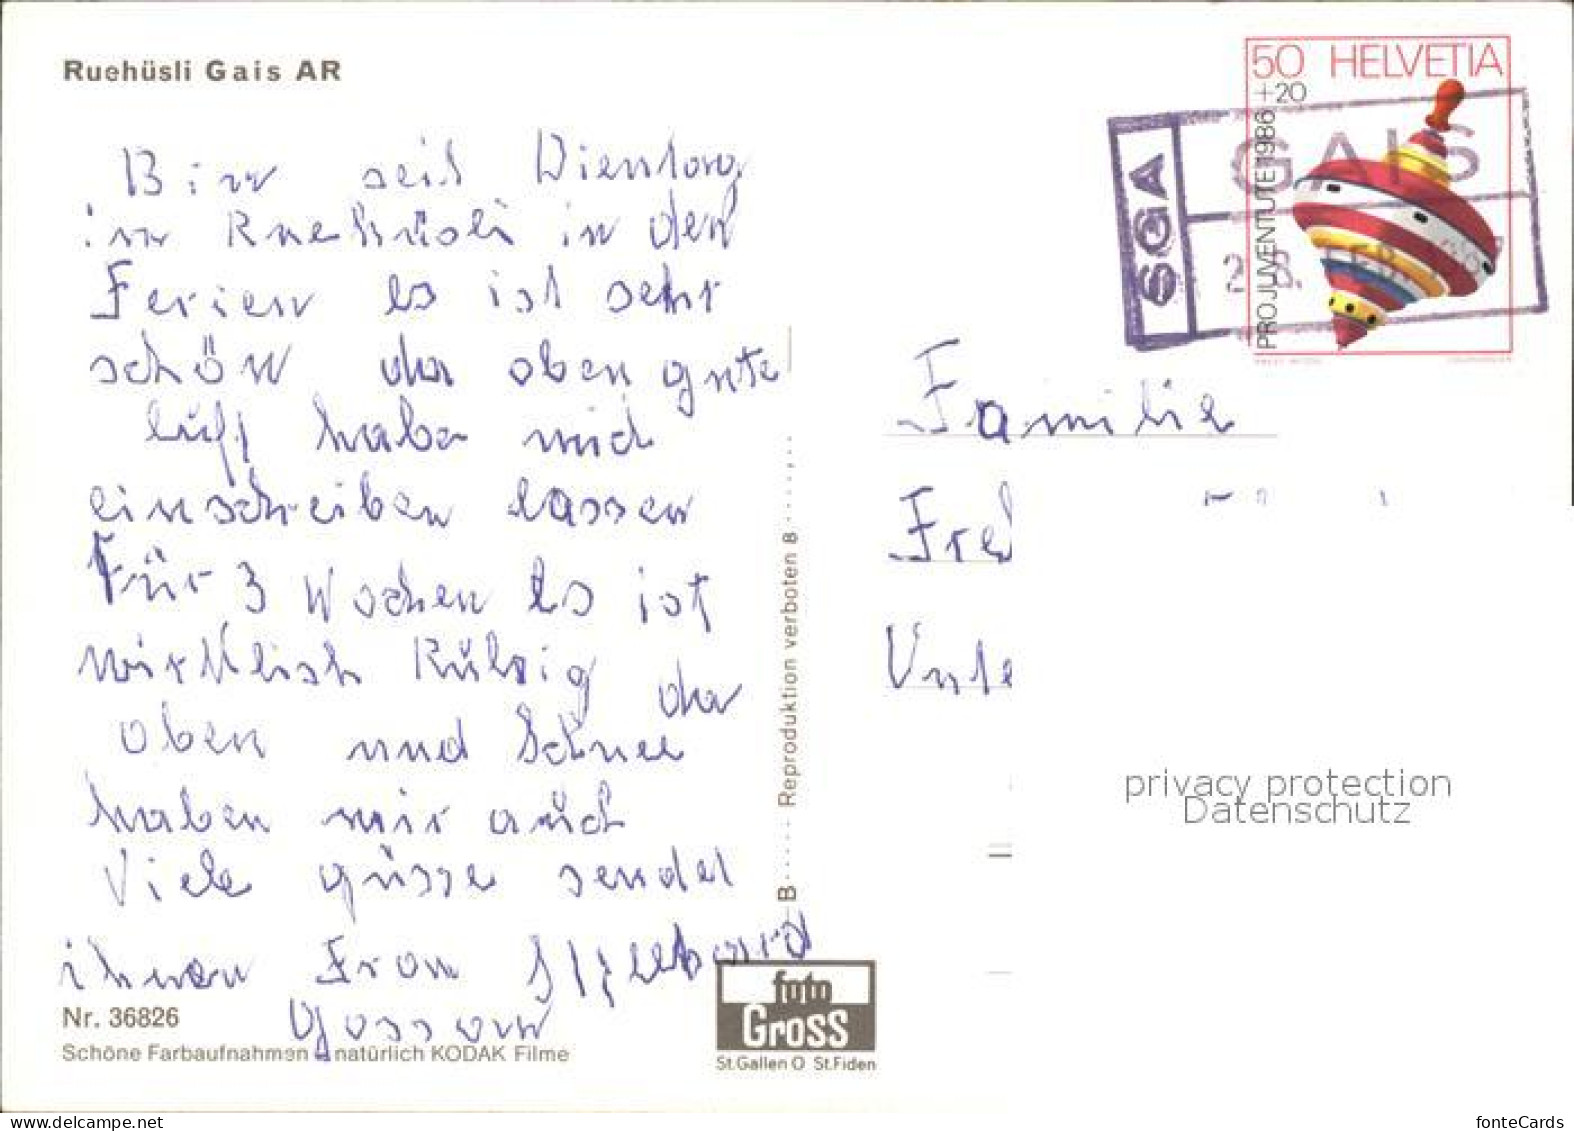 Ruehüsli Gais AR
50 HELVETIA
+20
PRO JUVENTUTE 1986
SGA
GAIS
Bin seit Dienstag
im Ruehüsli in den
Ferien Es ist sehr
schön da oben gute
luft habe mich
einschreiben lassen
Für 3 Wochen Es ist
wirklich Rühsig da
oben und Schnee
haben mir auch
Viele grüsse sendet
ihnen Frau
Gossau
Familie
Fre
Unte
B
Reproduktion verboten 8
Nr. 36826
Schöne Farbaufnahmen natürlich KODAK Filme
foto
Gross
St.Gallen O St.Fiden
privacy protection
Datenschutz
fonteCards